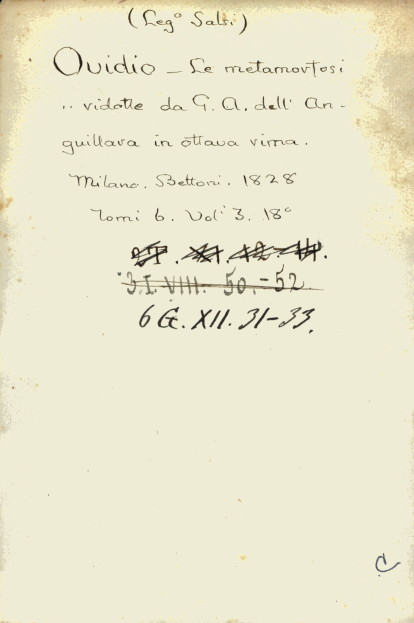 (Leg° Salvi)
Ovidio – Le metamorfosi
.. ridotte da G. A. dell' An-
guillara in ottava rima.
Milano. Bettoni. 1828
Tomi 6. Vol' 3. 18°
3. I. VIII. 50.-52.
6 G. XII. 31-33.
C